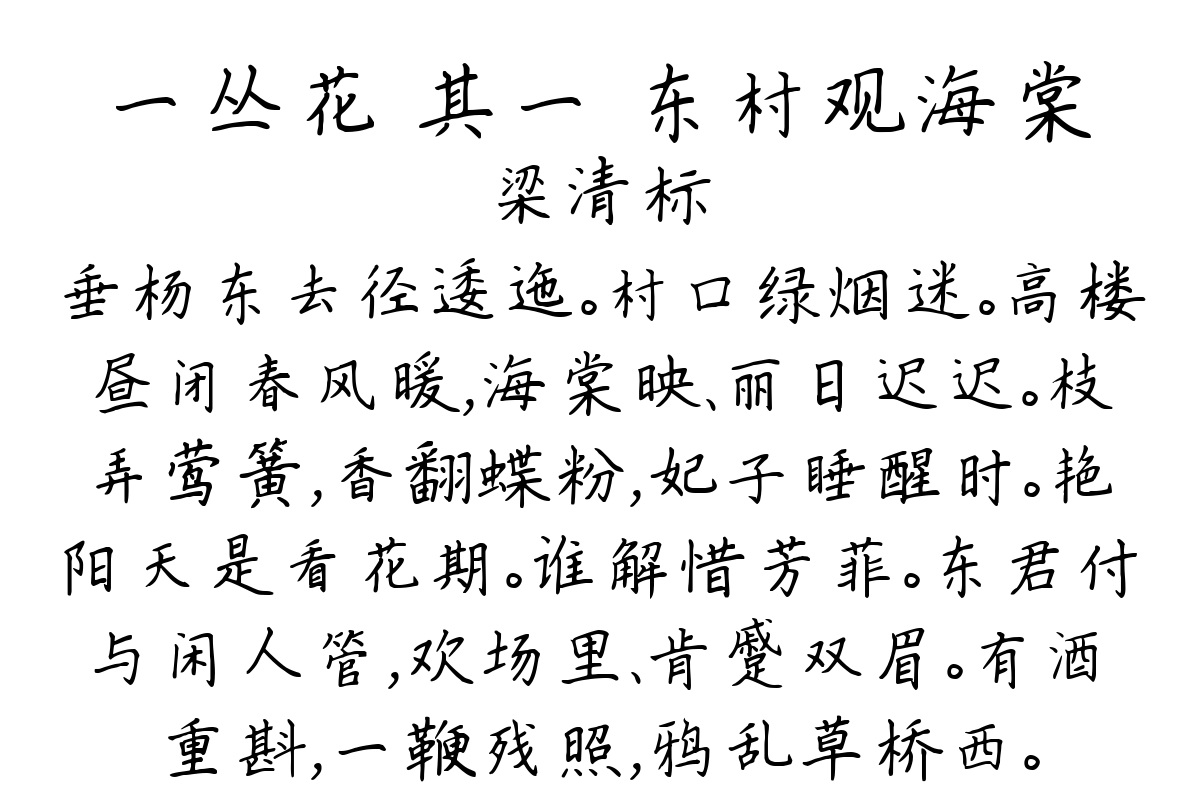 一丛花 其一 东村观海棠
梁清标
垂杨东去径逶迤。村口绿烟迷。高楼
昼闭春风暖,海棠映、丽日迟迟。枝
弄莺簧,香翻蝶粉,妃子睡醒时。艳
阳天是看花期。谁解惜芳菲。东君付
与闲人管,欢场里、肯蹙双眉。有酒
重斟,一鞭残照,鸦乱草桥西。